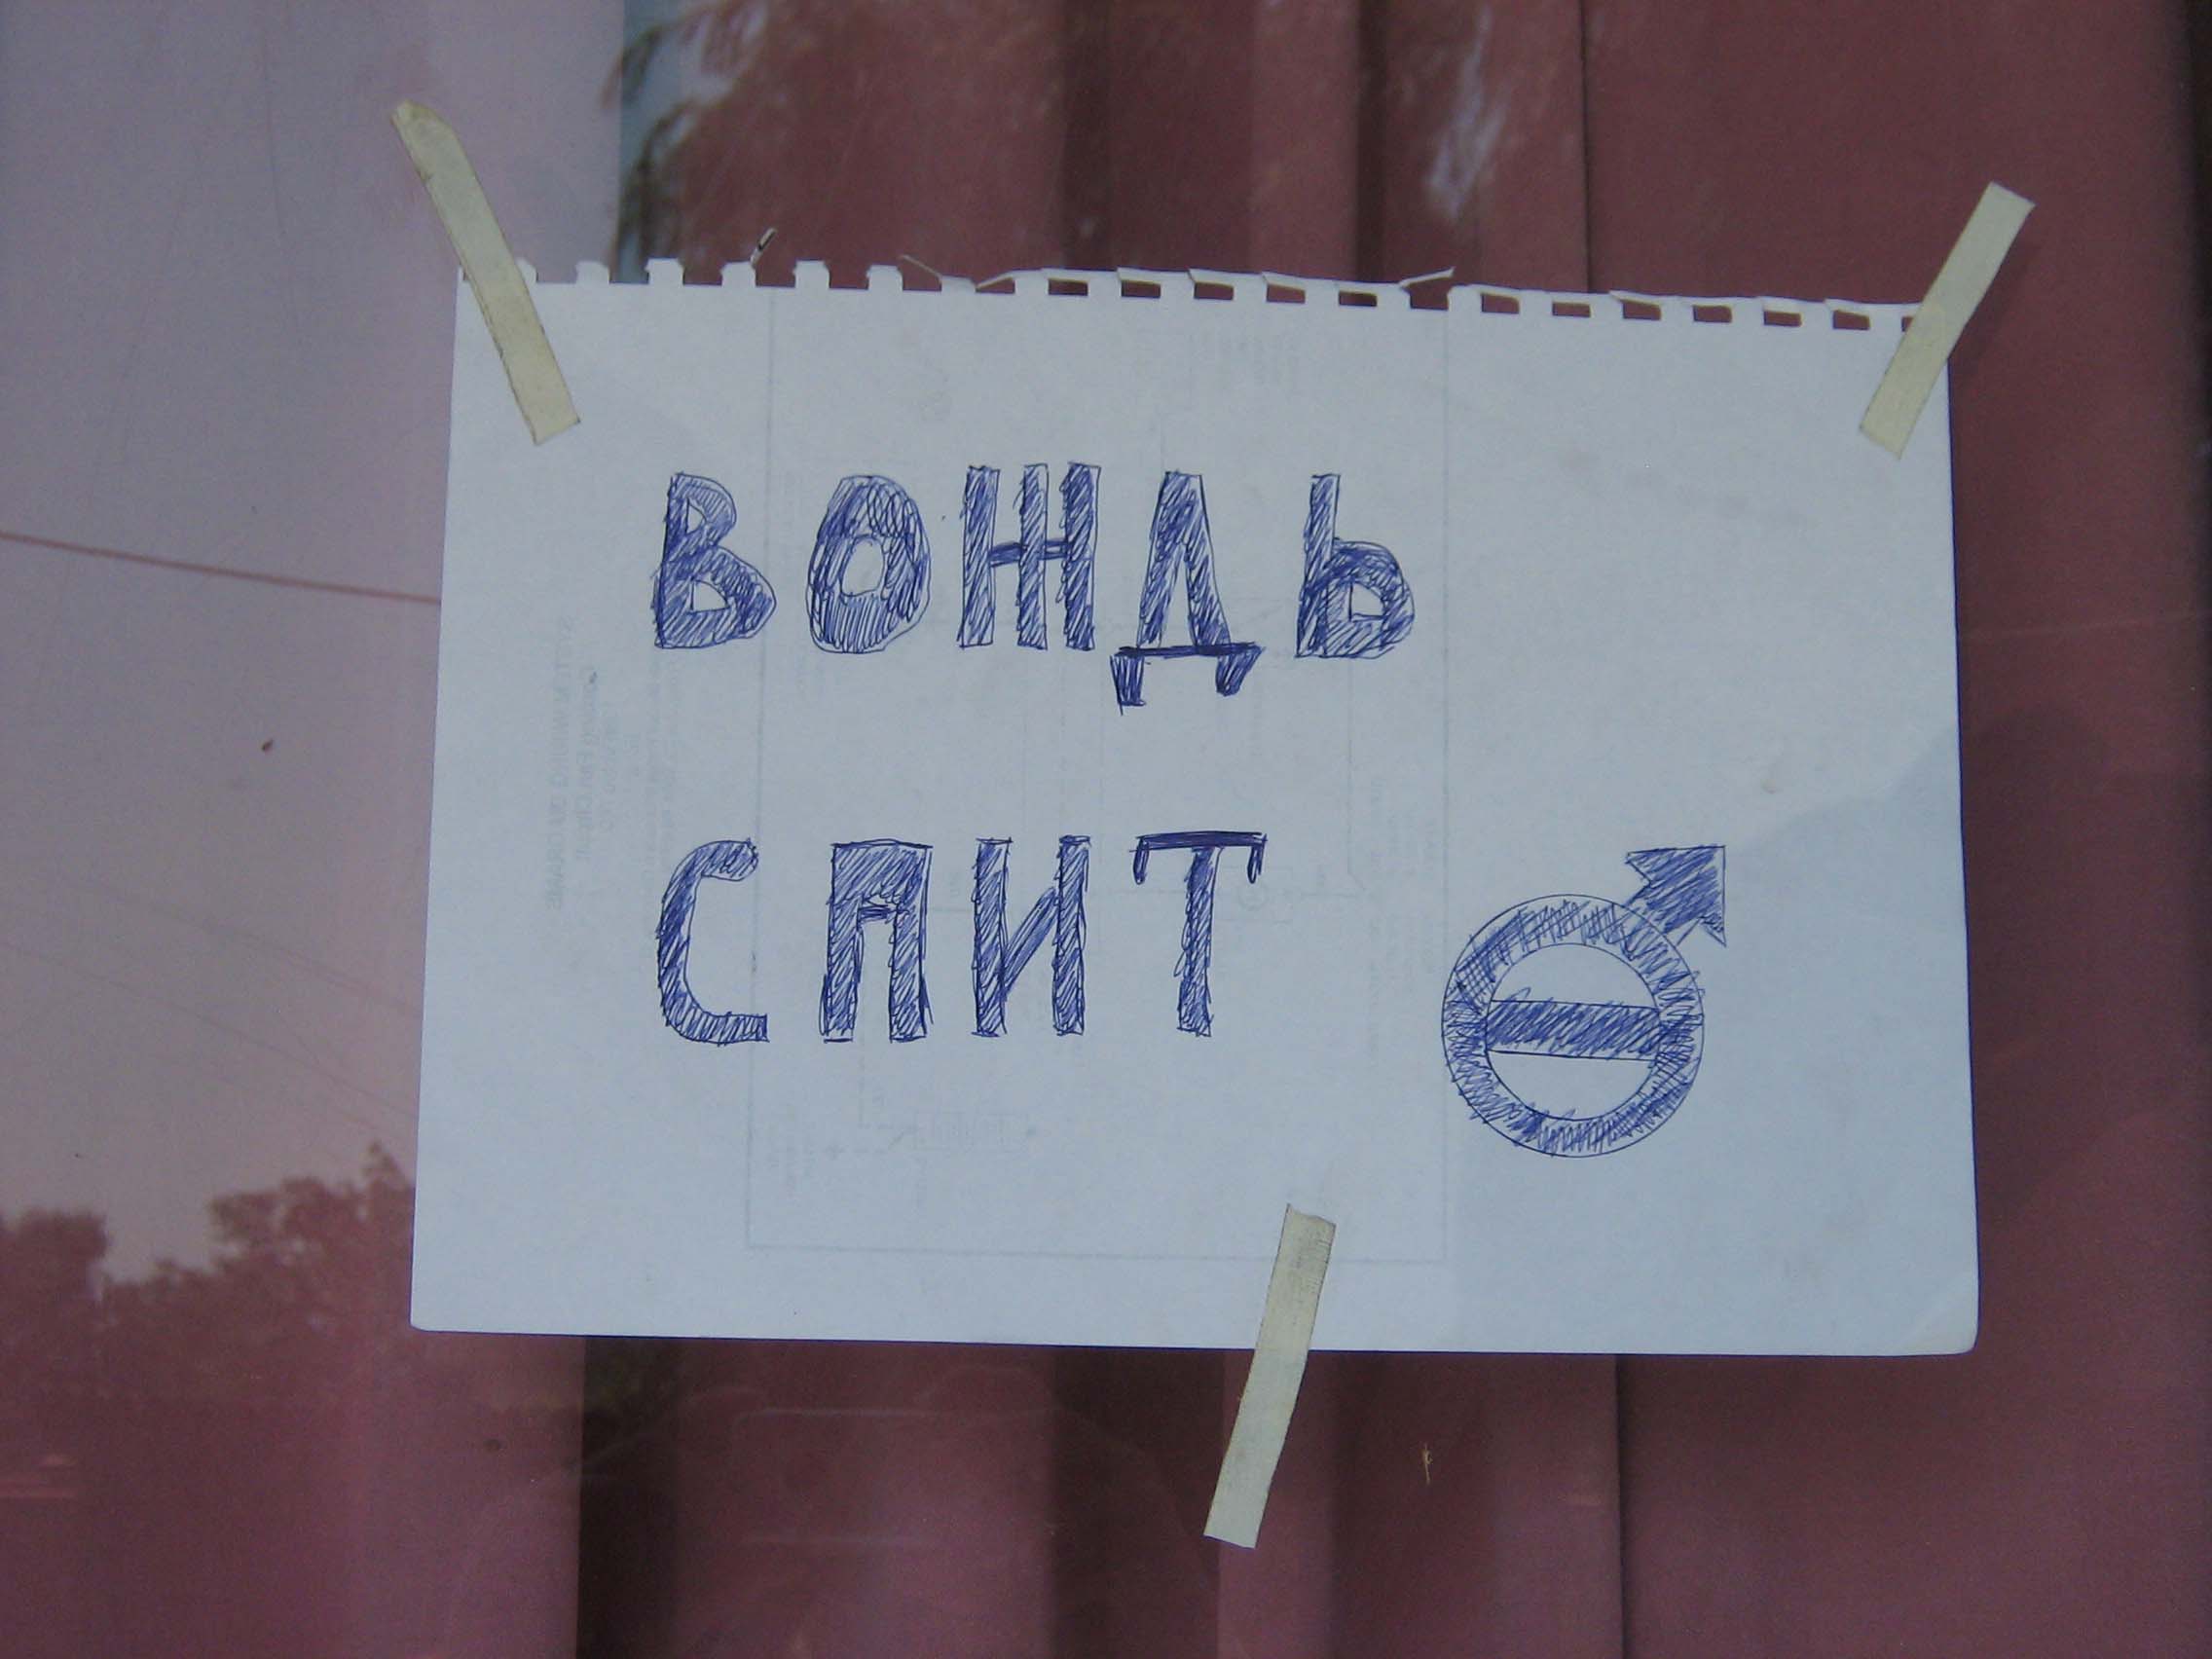 ВОЖДЬ
СПИТ